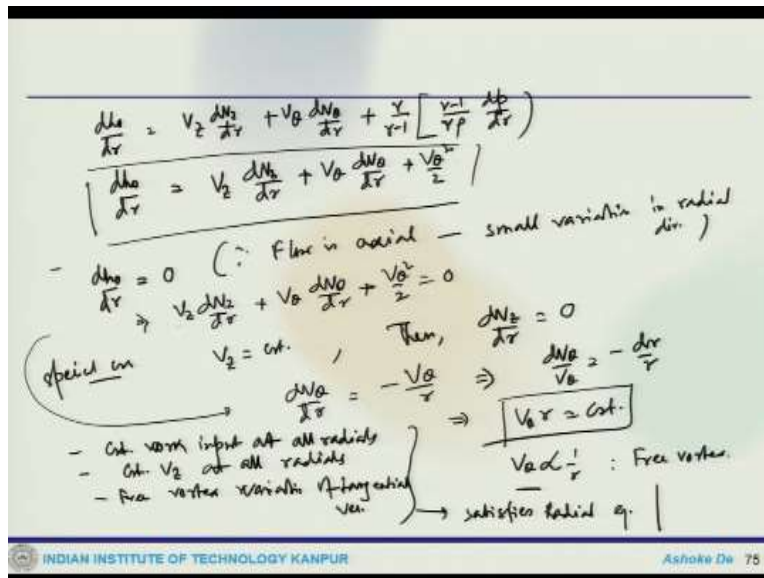 dh₀/dr = V_z dV_z/dr + V_θ dV_θ/dr + γ/(γ-1) [ (γ-1)/(γρ) dp/dr )
dh₀/dr = V_z dV_z/dr + V_θ dV_θ/dr + V_θ²/2
- dh₀/dr = 0 (∵ Flow is axial — small variation in radial dir. )
⇒ V_z dV_z/dr + V_θ dV_θ/dr + V_θ²/2 = 0
special V_z = cst. , Then, dV_z/dr = 0
dV_θ/dr = - V_θ/r ⇒ dV_θ/V_θ = - dr/r
⇒ V_θ r = cst.
- Cst. work input at all radials
- Cst. V_z at all radials
- Free vortex variation of tangential vel.
V_θ ∝ 1/r : Free vortex.
→ satisfies Radial eq.
INDIAN INSTITUTE OF TECHNOLOGY KANPUR
Ashoke De 75